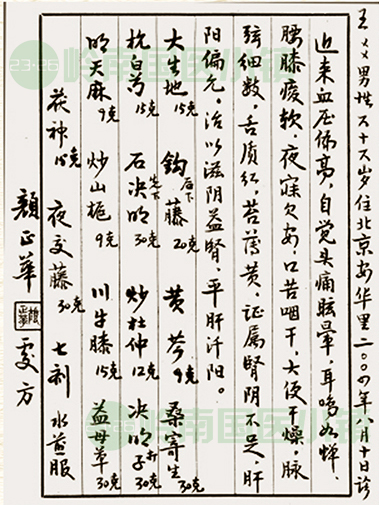 王××男性六十六岁住北京安华里二〇〇四年八月十日诊
近来血压偏高，自觉头痛眩晕，耳鸣如蝉，
腰膝痠软，夜寐欠安，口苦咽干，大便干燥，脉
弦细数，舌质红，苔薄黄，证属肾阴不足，肝
阳偏亢，治以滋阴益肾，平肝潜阳。
大生地15克 钩藤后下20克 黄芩9克 桑寄生30克
杭白芍15克 石决明先下30克 炒杜仲12克 决明子打30克
明天麻9克 炒山栀9克 川牛膝15克 益母草30克
茯神15克 夜交藤30克 七剂 水煎服
颜正华 处方
23·26 岭南国医小镇
岭南国医小镇